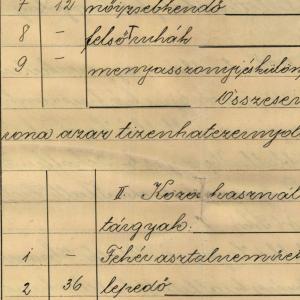 7 12 női zsebkendő
8 – felső ruhák
9 – menyasszonyi
Összesen
vona azaz tizenhatezernyol
II. Koza használ
tárgyak:
1 – Fehér asztalnemű
2 36 lepedő